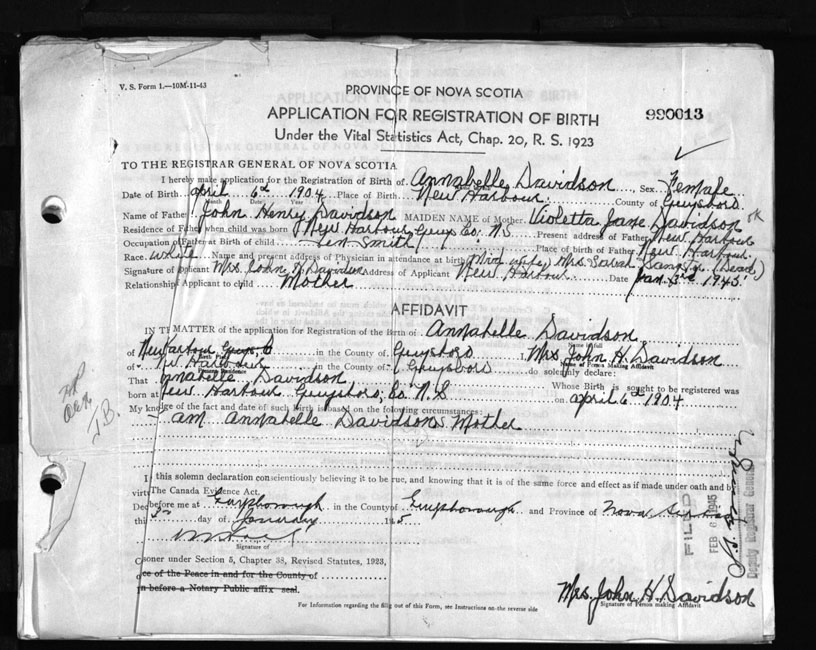 V. S. Form 1.—10M-11-43
PROVINCE OF NOVA SCOTIA
APPLICATION FOR REGISTRATION OF BIRTH
990013
Under the Vital Statistics Act, Chap. 20, R. S. 1923
TO THE REGISTRAR GENERAL OF NOVA SCOTIA
I hereby make application for the Registration of Birth of Annabelle Davidson Sex Female
Date of Birth April 6th 1904 Place of Birth New Harbour County of Guysboro
Month Day Year
Name of Father John Henry Davidson MAIDEN NAME of Mother Violetta Jane Davidson OK
Residence of Father when child was born New Harbour Guys Co. N.S Present address of Father New Harbour
Occupation of Father at Birth of child Place of birth of Father New Harbour
Race white Name and present address of Physician in attendance at birth Mid wife, Mrs. Sarah (Dead)
Signature of applicant Mrs. John H. Davidson Address of Applicant New Harbour Date Jan. 3rd 1945
Relationship of Applicant to child Mother
AFFIDAVIT
IN T MATTER of the application for Registration of the Birth of Annabelle Davidson
of New Harbour Guys. Co in the County of Guysboro I, Mrs. John H. Davidson
Name of Person Making Affidavit
of Harbour in the County of Guysboro do solemnly declare:
Present Residence
That nnabelle Davidson Whose Birth is sought to be registered was
born at New Harbour Guysboro, Co. N.S on April 6th 1904
My knowledge of the fact and date of such birth is based on the following circumstances:
I am Annabelle Davidsons Mother
J.B.
this solemn declaration conscientiously believing it to be true, and knowing that it is of the same force and effect as if made under oath and by
virt The Canada Evidence Act.
Dec before me at Guysborough in the County of Guysborough and Province of Nova Scotia
thi 3rd day of January 19 5
Signature of
FILED
FEB 8 1945
Deputy Registrar General
oner under Section 5, Chapter 38, Revised Statutes, 1923,
ce of the Peace in and for the County of
n before a Notary Public affix seal.
Mrs. John H. Davidson
Signature of Person making Affidavit
For Information regarding the filling out of this Form, see Instructions on the reverse side